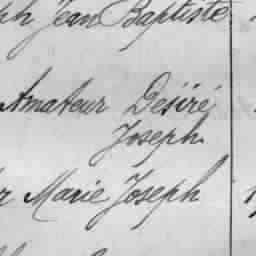 Jean Baptiste
Amateur Désiré
Joseph
Marie Joseph